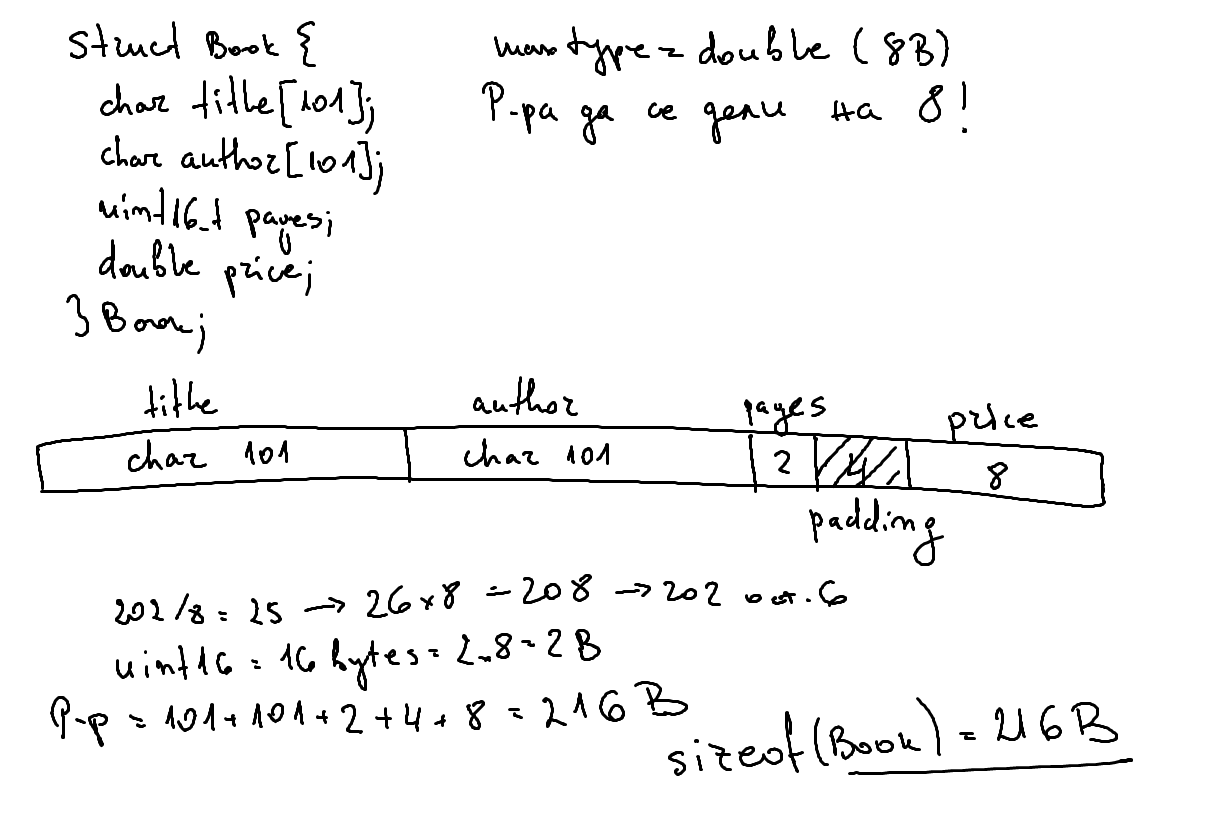 struct Book {
char title[101];
char author[101];
uint16_t pages;
double price;
} Book;
max type = double (8B)
Р-ра да се дели на 8!
title author pages price
char 101 char 101 2 4 8
padding
202/8 = 25 → 26x8 = 208 → 202 ост. 6
uint16 = 16 bytes = 2.8 = 2B
Р-р = 101 + 101 + 2 + 4 + 8 = 216 B
sizeof(Book) = 216B